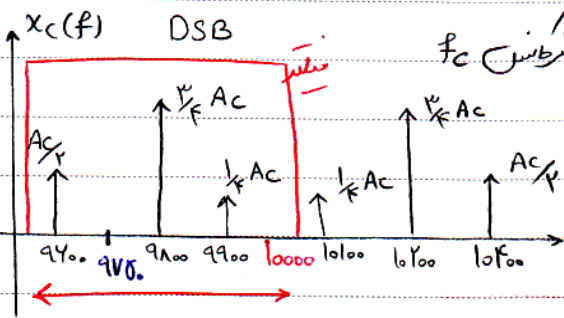 x_c(f) DSB
فیلتر
f_c
Ac/۲ ۳/۴ Ac ۱/۴ Ac ۱/۴ Ac ۳/۴ Ac Ac/۲
۹۶۰۰ ۹۷۵۰ ۹۸۰۰ ۹۹۰۰ 10000 ۱۰۱۰۰ ۱۰۲۰۰ ۱۰۴۰۰